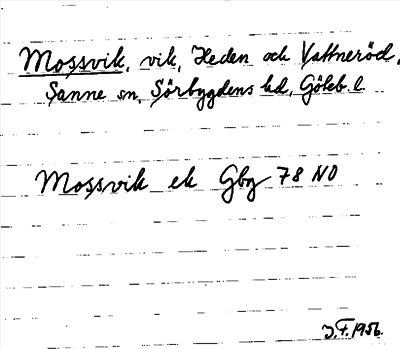 Mossvik, vik, Heden och Vattneröd,
Sanne sn, Sörbygdens hd, Göteb. l
Mossvik ek Gby 78 NO
J.F. 1956.